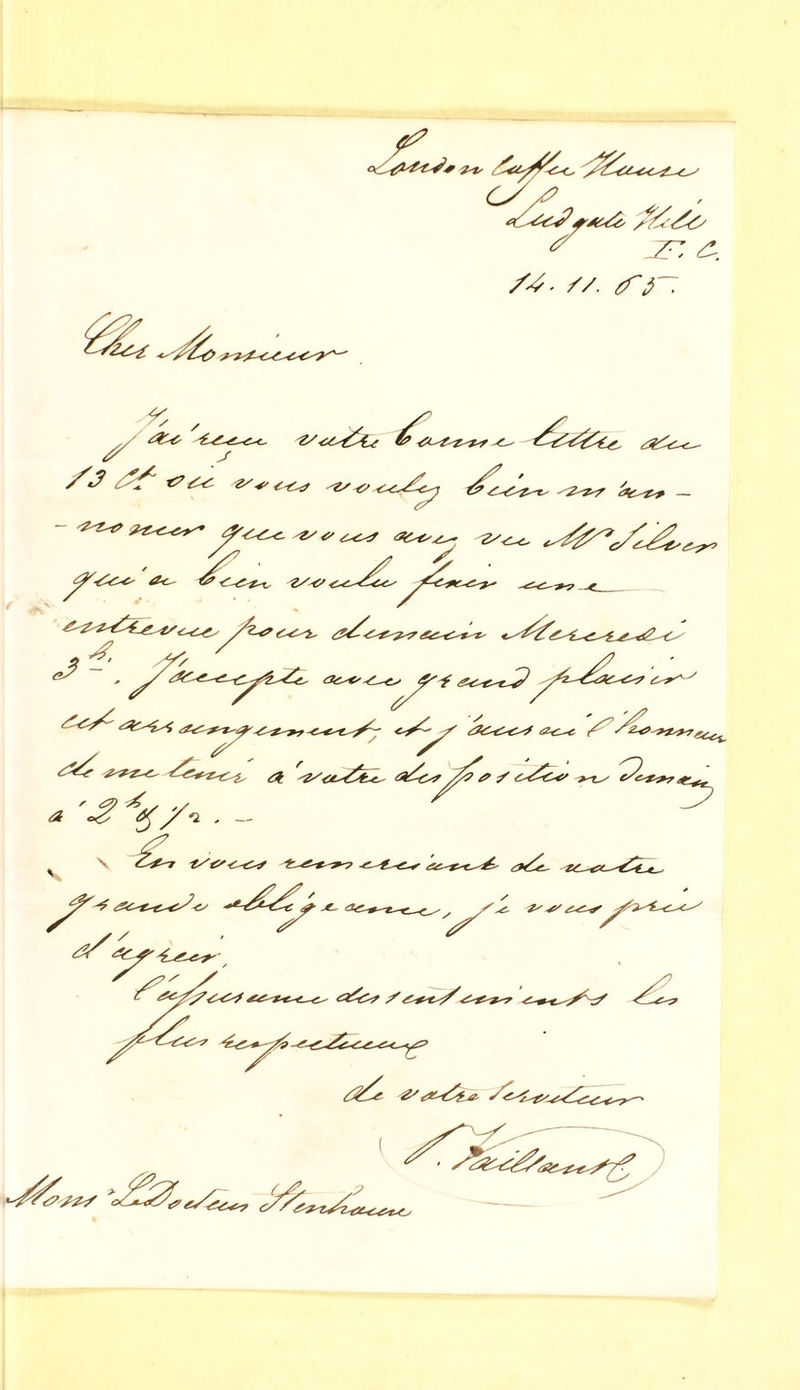 London Coffee House
Ludgate Hill
E. C.
14. 11. 65.
Cher Monsieur
J'ai reçu votre bonne lettre du
13 Ct où vous voulez bien m'an-
-noncer que vous avez vu Mr Silver
qui a bien voulu fixer une
entrevue pour demain Mercredi
3h. J'accepte avec grand plaisir
cet arrangement, et j'aurai l'honneur
de me tenir à votre disposition demain
à 2h & 1/2. -
En vous remerciant de votre
grande obligeance, je vous prie
d'agréer,
l'assurance des sentiments les
plus respectueux
de votre serviteur
P. Vaillant
Monsr Le Docteur Stenhouse